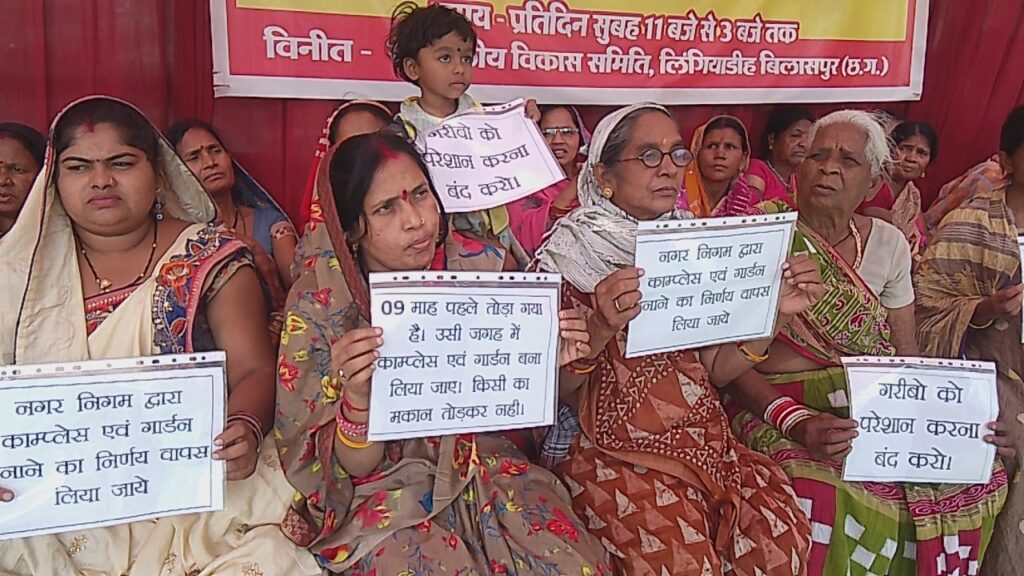 समय - प्रतिदिन सुबह 11 बजे से 3 बजे तक
विनीत - विकास समिति, लिंगियाडीह बिलासपुर (छ.ग.)
गरीबो को
परेशान करना
बंद करो।
नगर निगम द्वारा
काम्प्लेस एवं गार्डन
नाने का निर्णय वापस
लिया जाये
09 माह पहले तोड़ा गया
है। उसी जगह में
काम्प्लेस एवं गार्डन बना
लिया जाए। किसी का
मकान तोड़कर नही।
नगर निगम द्वारा
काम्प्लेस एवं गार्डन
नाने का निर्णय वापस
लिया जाये
गरीबो को
परेशान करना
बंद करो।